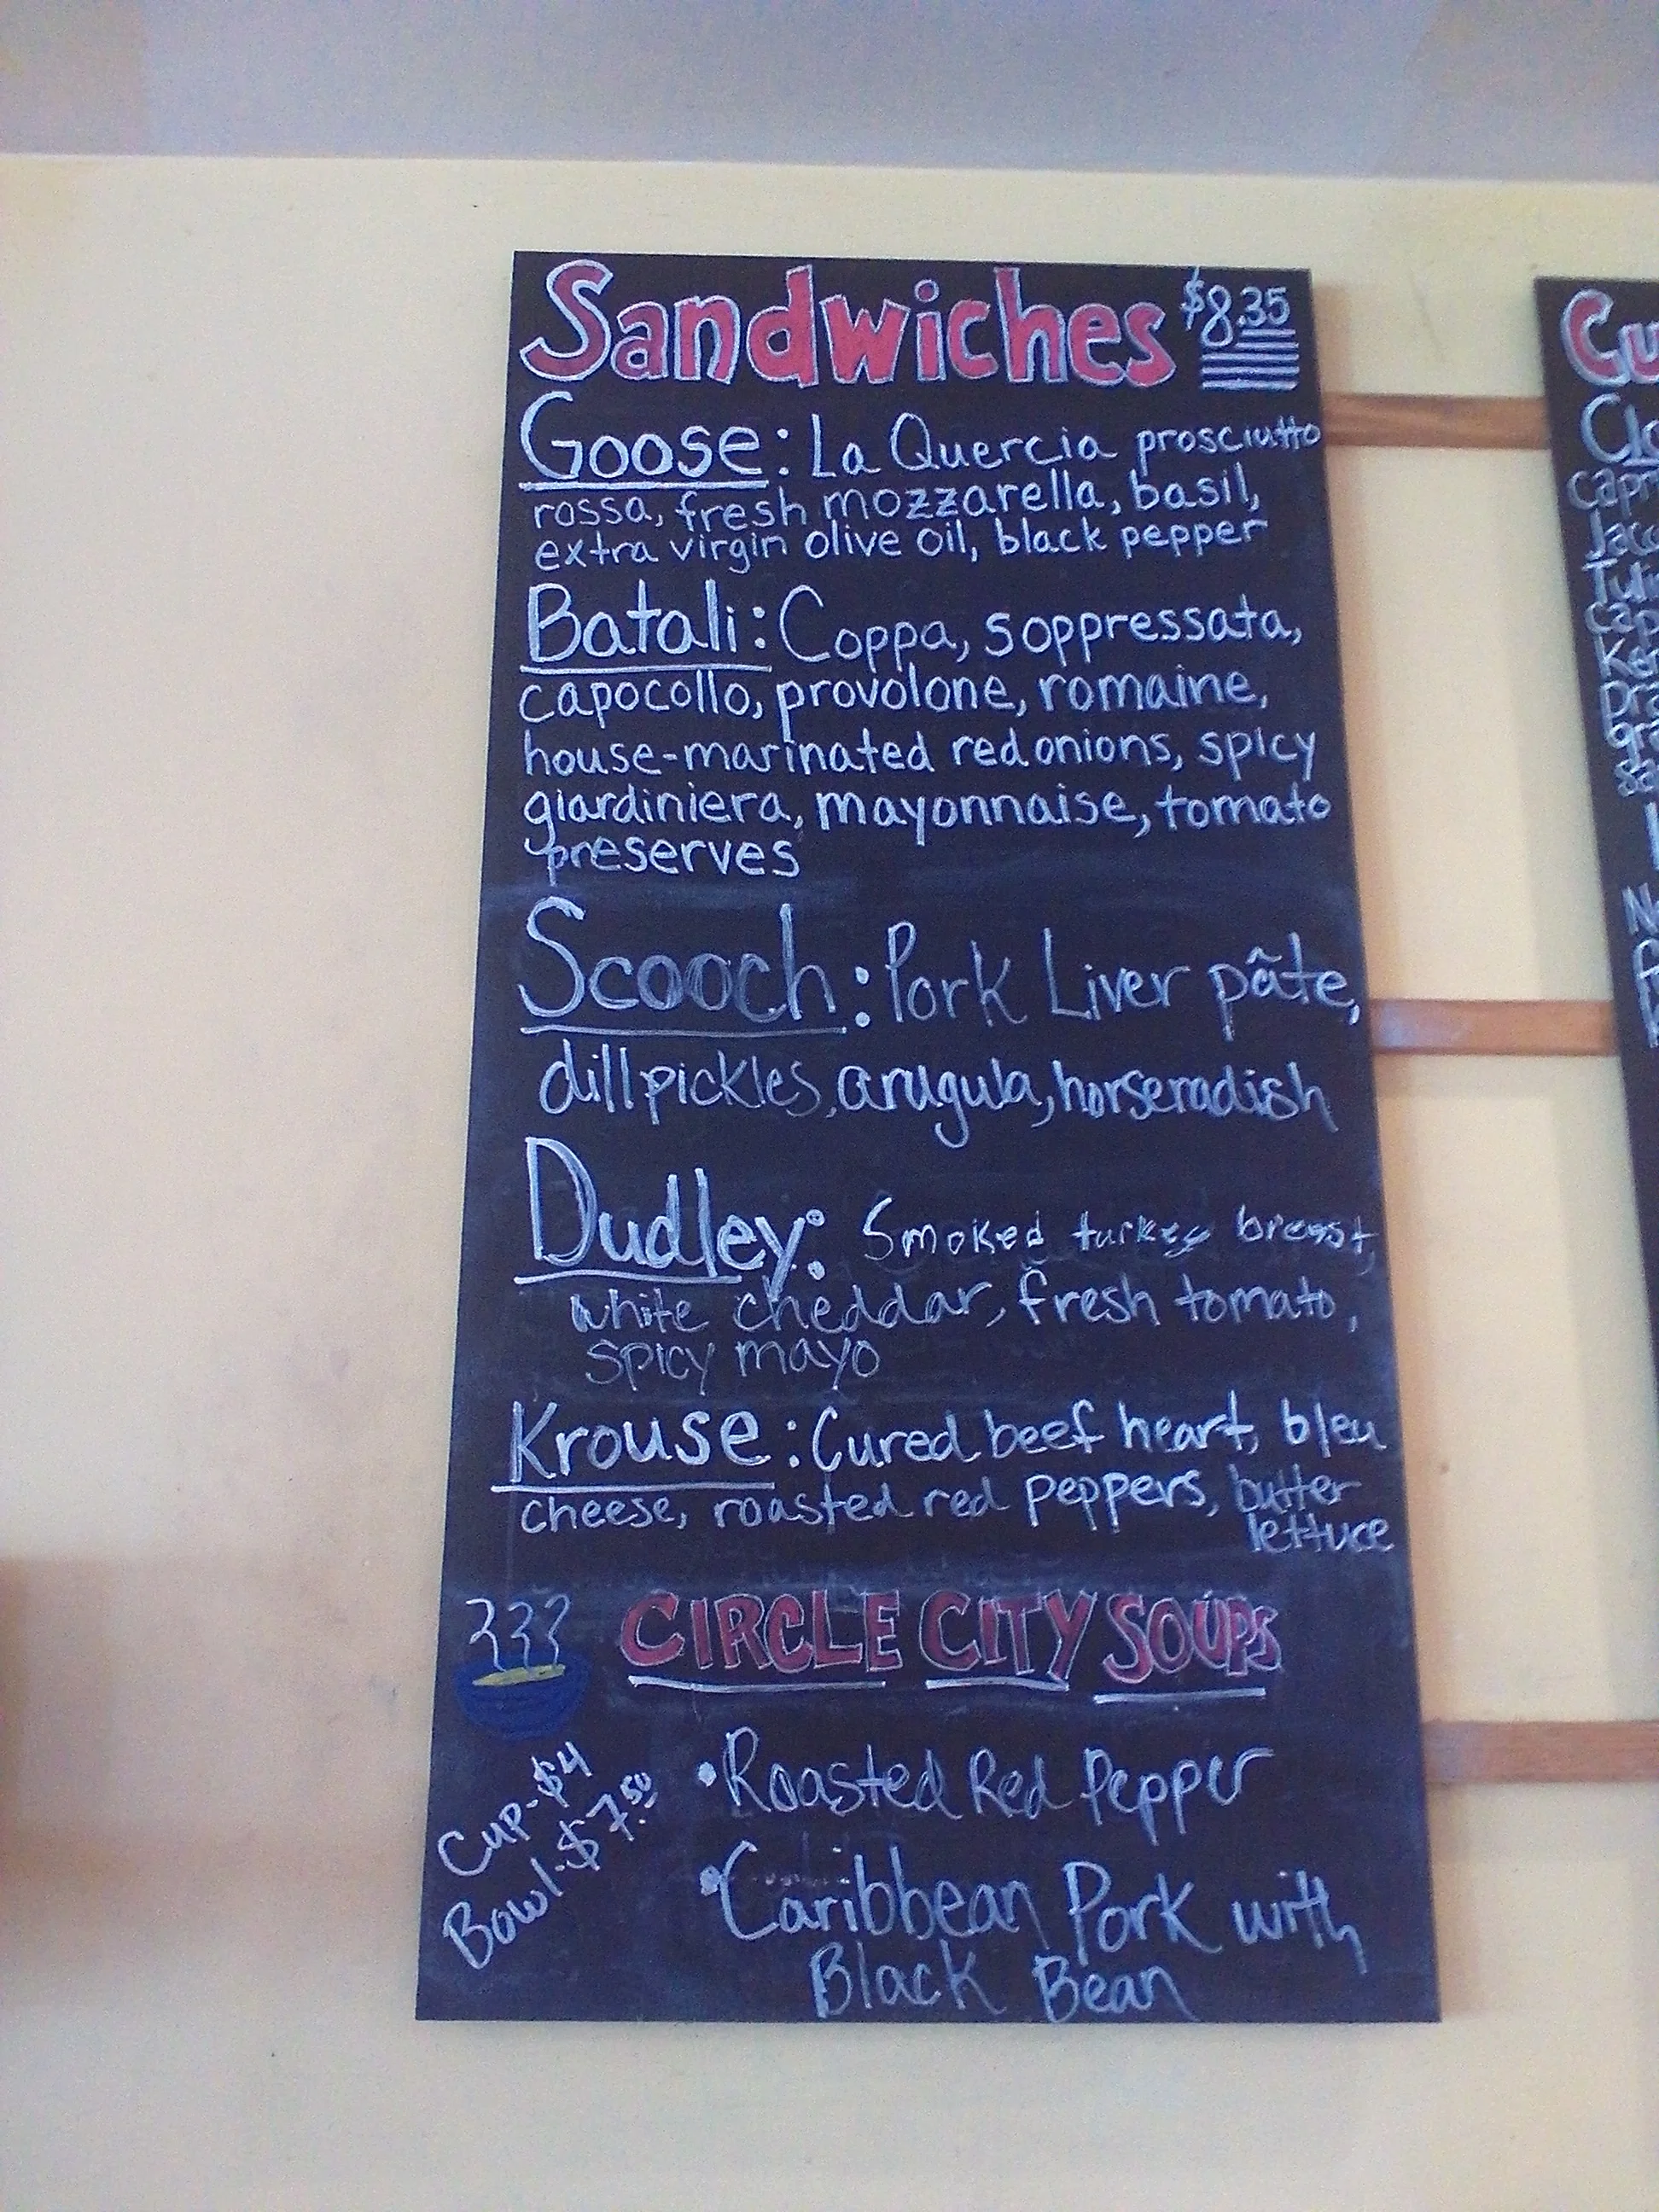 Sandwiches $8.35
Goose: La Quercia prosciutto
rossa, fresh mozzarella, basil,
extra virgin olive oil, black pepper
Batali: Coppa, soppressata,
capocollo, provolone, romaine,
house-marinated red onions, spicy
giardiniera, mayonnaise, tomato
preserves
Scooch: Pork Liver pâte,
dill pickles, arugula, horseradish
Dudley: Smoked turkey breast,
white cheddar, fresh tomato,
spicy mayo
Krouse: Cured beef heart, bleu
cheese, roasted red peppers, butter
lettuce
CIRCLE CITY SOUPS
Cup-$4
Bowl-$7.50
•Roasted Red Pepper
•Caribbean Pork with
Black Bean